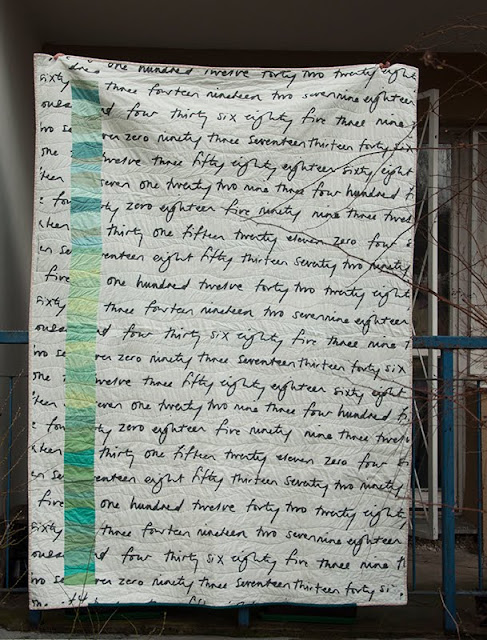 one hundred twelve forty two twenty eight
sixty three fourteen nineteen two seven nine eighteen
four thirty six eighty five three nine
two zero ninety three seventeen thirteen forty six
one twelve three fifty eighty eighteen sixty eight
one twenty two nine three four hundred
zero eighteen five ninety nine three
thirty one fifteen twenty eleven zero four
eight fifty thirteen seventy two ninety
five one hundred twelve forty two twenty eight
sixty three fourteen nineteen two seven nine eighteen
four thirty six eighty five three nine
two zero ninety three seventeen thirteen forty six
one twelve three fifty eighty eighteen sixty eight
one twenty two nine three four hundred
zero eighteen five ninety nine three
thirty one fifteen twenty eleven zero four
seventeen eight fifty thirteen seventy two ninety
five one hundred twelve forty two twenty eight
sixty three fourteen nineteen two seven nine eighteen
four thirty six eighty five three nine
two zero ninety three seventeen thirteen forty